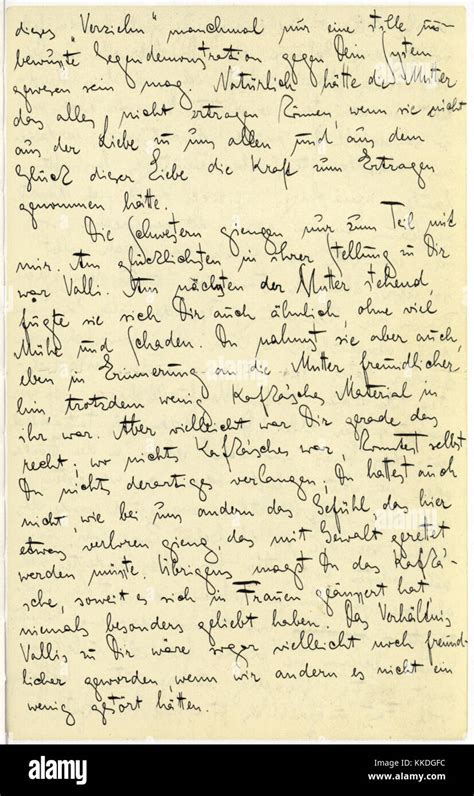 dieses "Verziehn" manchmal nur eine stille un-
bewusste Gegendemonstration gegen Dein System
gewesen sein mag. Natürlich hätte die Mutter
das alles nicht ertragen können, wenn sie nicht
aus der Liebe zu uns allen und aus dem
Glück dieser Liebe die Kraft zum Ertragen
genommen hätte.
Die Schwestern giengen nur zum Teil mit
mir. Am glücklichsten in ihrer Stellung zu Dir
war Valli. Am nächsten der Mutter stehend,
fügte sie sich Dir auch ähnlich, ohne viel
Mühe und Schaden. Du nahmst sie aber auch,
eben in Erinnerung an die Mutter freundlicher
hin, trotzdem wenig Kafka'sches Material in
ihr war. Aber vielleicht war Dir gerade das
recht; wo nichts Kafka'sches war, konntest selbst
Du nichts derartiges verlangen; Du hattest auch
nicht, wie bei uns andern das Gefühl, das hier
etwas verloren gieng, das mit Gewalt gerettet
werden müsste. Übrigens magst Du das Kafka'-
sche, soweit es sich in Frauen geäussert hat
niemals besonders geliebt haben. Das Verhältnis
Vallis zu Dir wäre sogar vielleicht noch freund-
licher geworden, wenn wir andern es nicht ein
wenig gestört hätten.
alamy
Image ID: KKDGFC
www.alamy.com